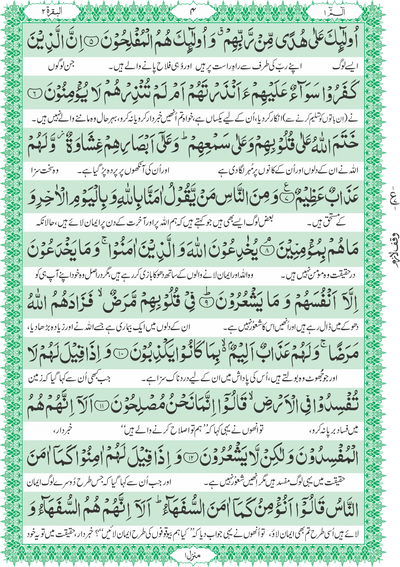 البقرة ٢
٤
الٓمّٓ ١
اُولٰٓئِكَ عَلٰى هُدًى مِّنْ رَّبِّهِمْ ۙ وَ اُولٰٓئِكَ هُمُ الْمُفْلِحُوْنَ ۝۵ اِنَّ الَّذِيْنَ
ایسے لوگ اپنے ربّ کی طرف سے راہِ راست پر ہیں اور وہی فلاح پانے والے ہیں۔ جن لوگوں
كَفَرُوْا سَوَآءٌ عَلَيْهِمْ ءَاَنْذَرْتَهُمْ اَمْ لَمْ تُنْذِرْهُمْ لَا يُؤْمِنُوْنَ ۝۶
نے (ان باتوں کو تسلیم کرنے سے) انکار کر دیا، اُن کے لیے یکساں ہے، خواہ تم اُنھیں خبردار کرو یا نہ کرو، بہرحال وہ ماننے والے نہیں ہیں۔
خَتَمَ اللّٰهُ عَلٰى قُلُوْبِهِمْ وَعَلٰى سَمْعِهِمْ ۭ وَعَلٰٓى اَبْصَارِهِمْ غِشَاوَةٌ ۡ وَّلَهُمْ
اللہ نے ان کے دلوں اور اُن کے کانوں پر مُہر لگا دی ہے اور اُن کی آنکھوں پر پردہ پڑ گیا ہے۔ وہ سخت سزا
عَذَابٌ عَظِيْمٌ ۝۷ وَ مِنَ النَّاسِ مَنْ يَّقُوْلُ اٰمَنَّا بِاللّٰهِ وَ بِالْيَوْمِ الْاٰخِرِ وَ
کے مستحق ہیں۔ بعض لوگ ایسے بھی ہیں جو کہتے ہیں کہ ہم اللہ پر اور آخرت کے دن پر ایمان لائے ہیں، حالانکہ
مَا هُمْ بِمُؤْمِنِيْنَ ۝۸ يُخٰدِعُوْنَ اللّٰهَ وَ الَّذِيْنَ اٰمَنُوْا ۚ وَ مَا يَخْدَعُوْنَ
درحقیقت وہ مومن نہیں ہیں۔ وہ اللہ اور ایمان لانے والوں کے ساتھ دھوکا بازی کر رہے ہیں، مگر دراصل وہ خود اپنے آپ ہی کو
اِلَّآ اَنْفُسَهُمْ وَ مَا يَشْعُرُوْنَ ۝۹ فِيْ قُلُوْبِهِمْ مَّرَضٌ ۙ فَزَادَهُمُ اللّٰهُ
دھوکے میں ڈال رہے ہیں اور انھیں اس کا شعور نہیں ہے۔ ان کے دلوں میں ایک بیماری ہے جسے اللہ نے اور زیادہ بڑھا دیا،
مَرَضًا ۚ وَلَهُمْ عَذَابٌ اَلِيْمٌ ۢ بِمَا كَانُوْا يَكْذِبُوْنَ ۝۱۰ وَ اِذَا قِيْلَ لَهُمْ لَا
اور جو جھوٹ وہ بولتے ہیں، اُس کی پاداش میں ان کے لیے دردناک سزا ہے۔ جب کبھی اُن سے کہا گیا کہ زمین
تُفْسِدُوْا فِي الْاَرْضِ ۙ قَالُوْٓا اِنَّمَا نَحْنُ مُصْلِحُوْنَ ۝۱۱ اَلَآ اِنَّهُمْ هُمُ
میں فساد برپا نہ کرو، تو انھوں نے یہی کہا کہ ”ہم تو اصلاح کرنے والے ہیں“ خبردار،
الْمُفْسِدُوْنَ وَ لٰكِنْ لَّا يَشْعُرُوْنَ ۝۱۲ وَ اِذَا قِيْلَ لَهُمْ اٰمِنُوْا كَمَآ اٰمَنَ
حقیقت میں یہی لوگ مفسد ہیں مگر انھیں شعور نہیں ہے۔ اور جب اُن سے کہا گیا کہ جس طرح دُوسرے لوگ ایمان
النَّاسُ قَالُوْٓا اَنُؤْمِنُ كَمَآ اٰمَنَ السُّفَهَآءُ ۭ اَلَآ اِنَّهُمْ هُمُ السُّفَهَآءُ وَ
لائے ہیں اُسی طرح تم بھی ایمان لاؤ، تو اُنھوں نے یہی جواب دیا کہ ”کیا ہم بیوقوفوں کی طرح ایمان لائیں“؟ خبردار، حقیقت میں تو یہ خود
منزل ۱